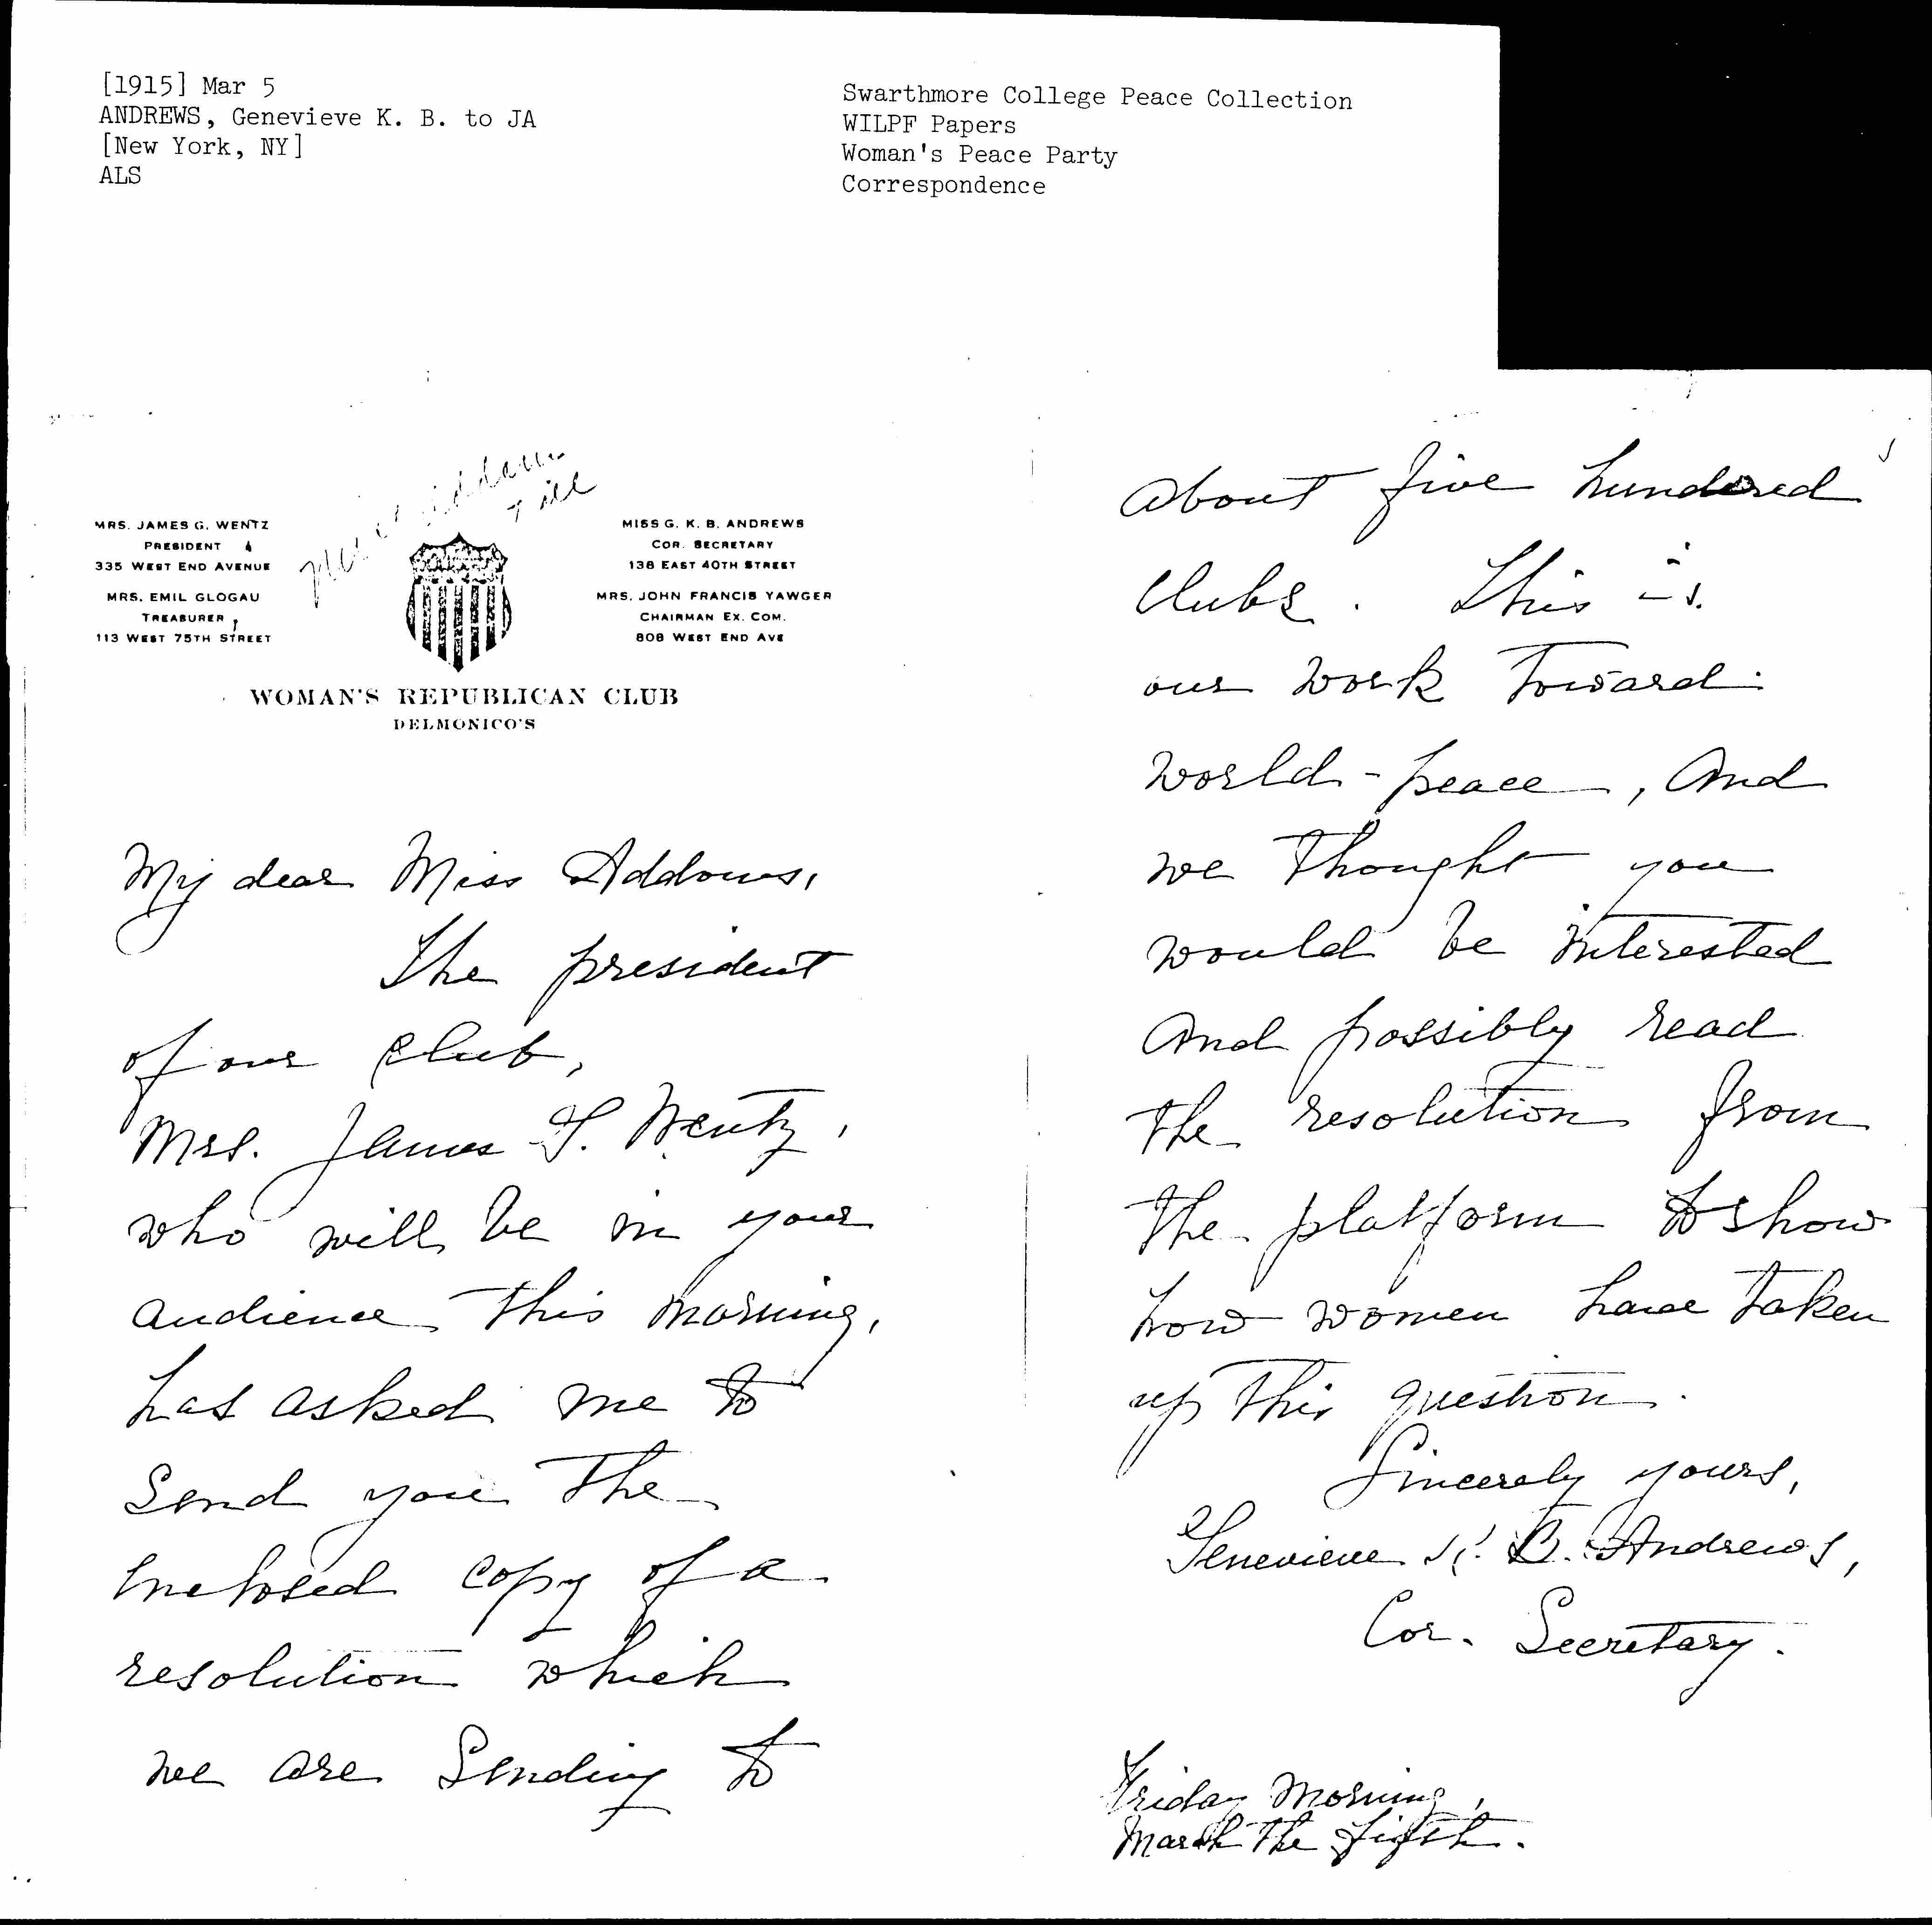 [1915] Mar 5
ANDREWS, Genevieve K. B. to JA
[New York, NY]
ALS
Swarthmore College Peace Collection
WILPF Papers
Woman's Peace Party
Correspondence
MRS. JAMES G. WENTZ
PRESIDENT
335 WEST END AVENUE
MRS. EMIL GLOGAU
TREASURER
113 WEST 75TH STREET
MISS G. K. B. ANDREWS
COR. SECRETARY
138 EAST 40TH STREET
MRS. JOHN FRANCIS YAWGER
CHAIRMAN EX. COM.
808 WEST END AVE
WOMAN'S REPUBLICAN CLUB
DELMONICO'S
My dear Miss Addams,
The president
of our Club,
Mrs. James G. Wentz,
who will be in your
audience this morning,
has asked me to
send you the
inclosed copy of a
resolution which
we are sending to
about five hundered
Clubs. This is
our work toward
world-peace, and
we thought you
would be interested
and possibly read
the resolution from
the platform to show
how women have taken
up this question.
Sincerely yours,
Genevieve K. B. Andrews,
Cor. Secretary.
Friday morning,
March the fifth.